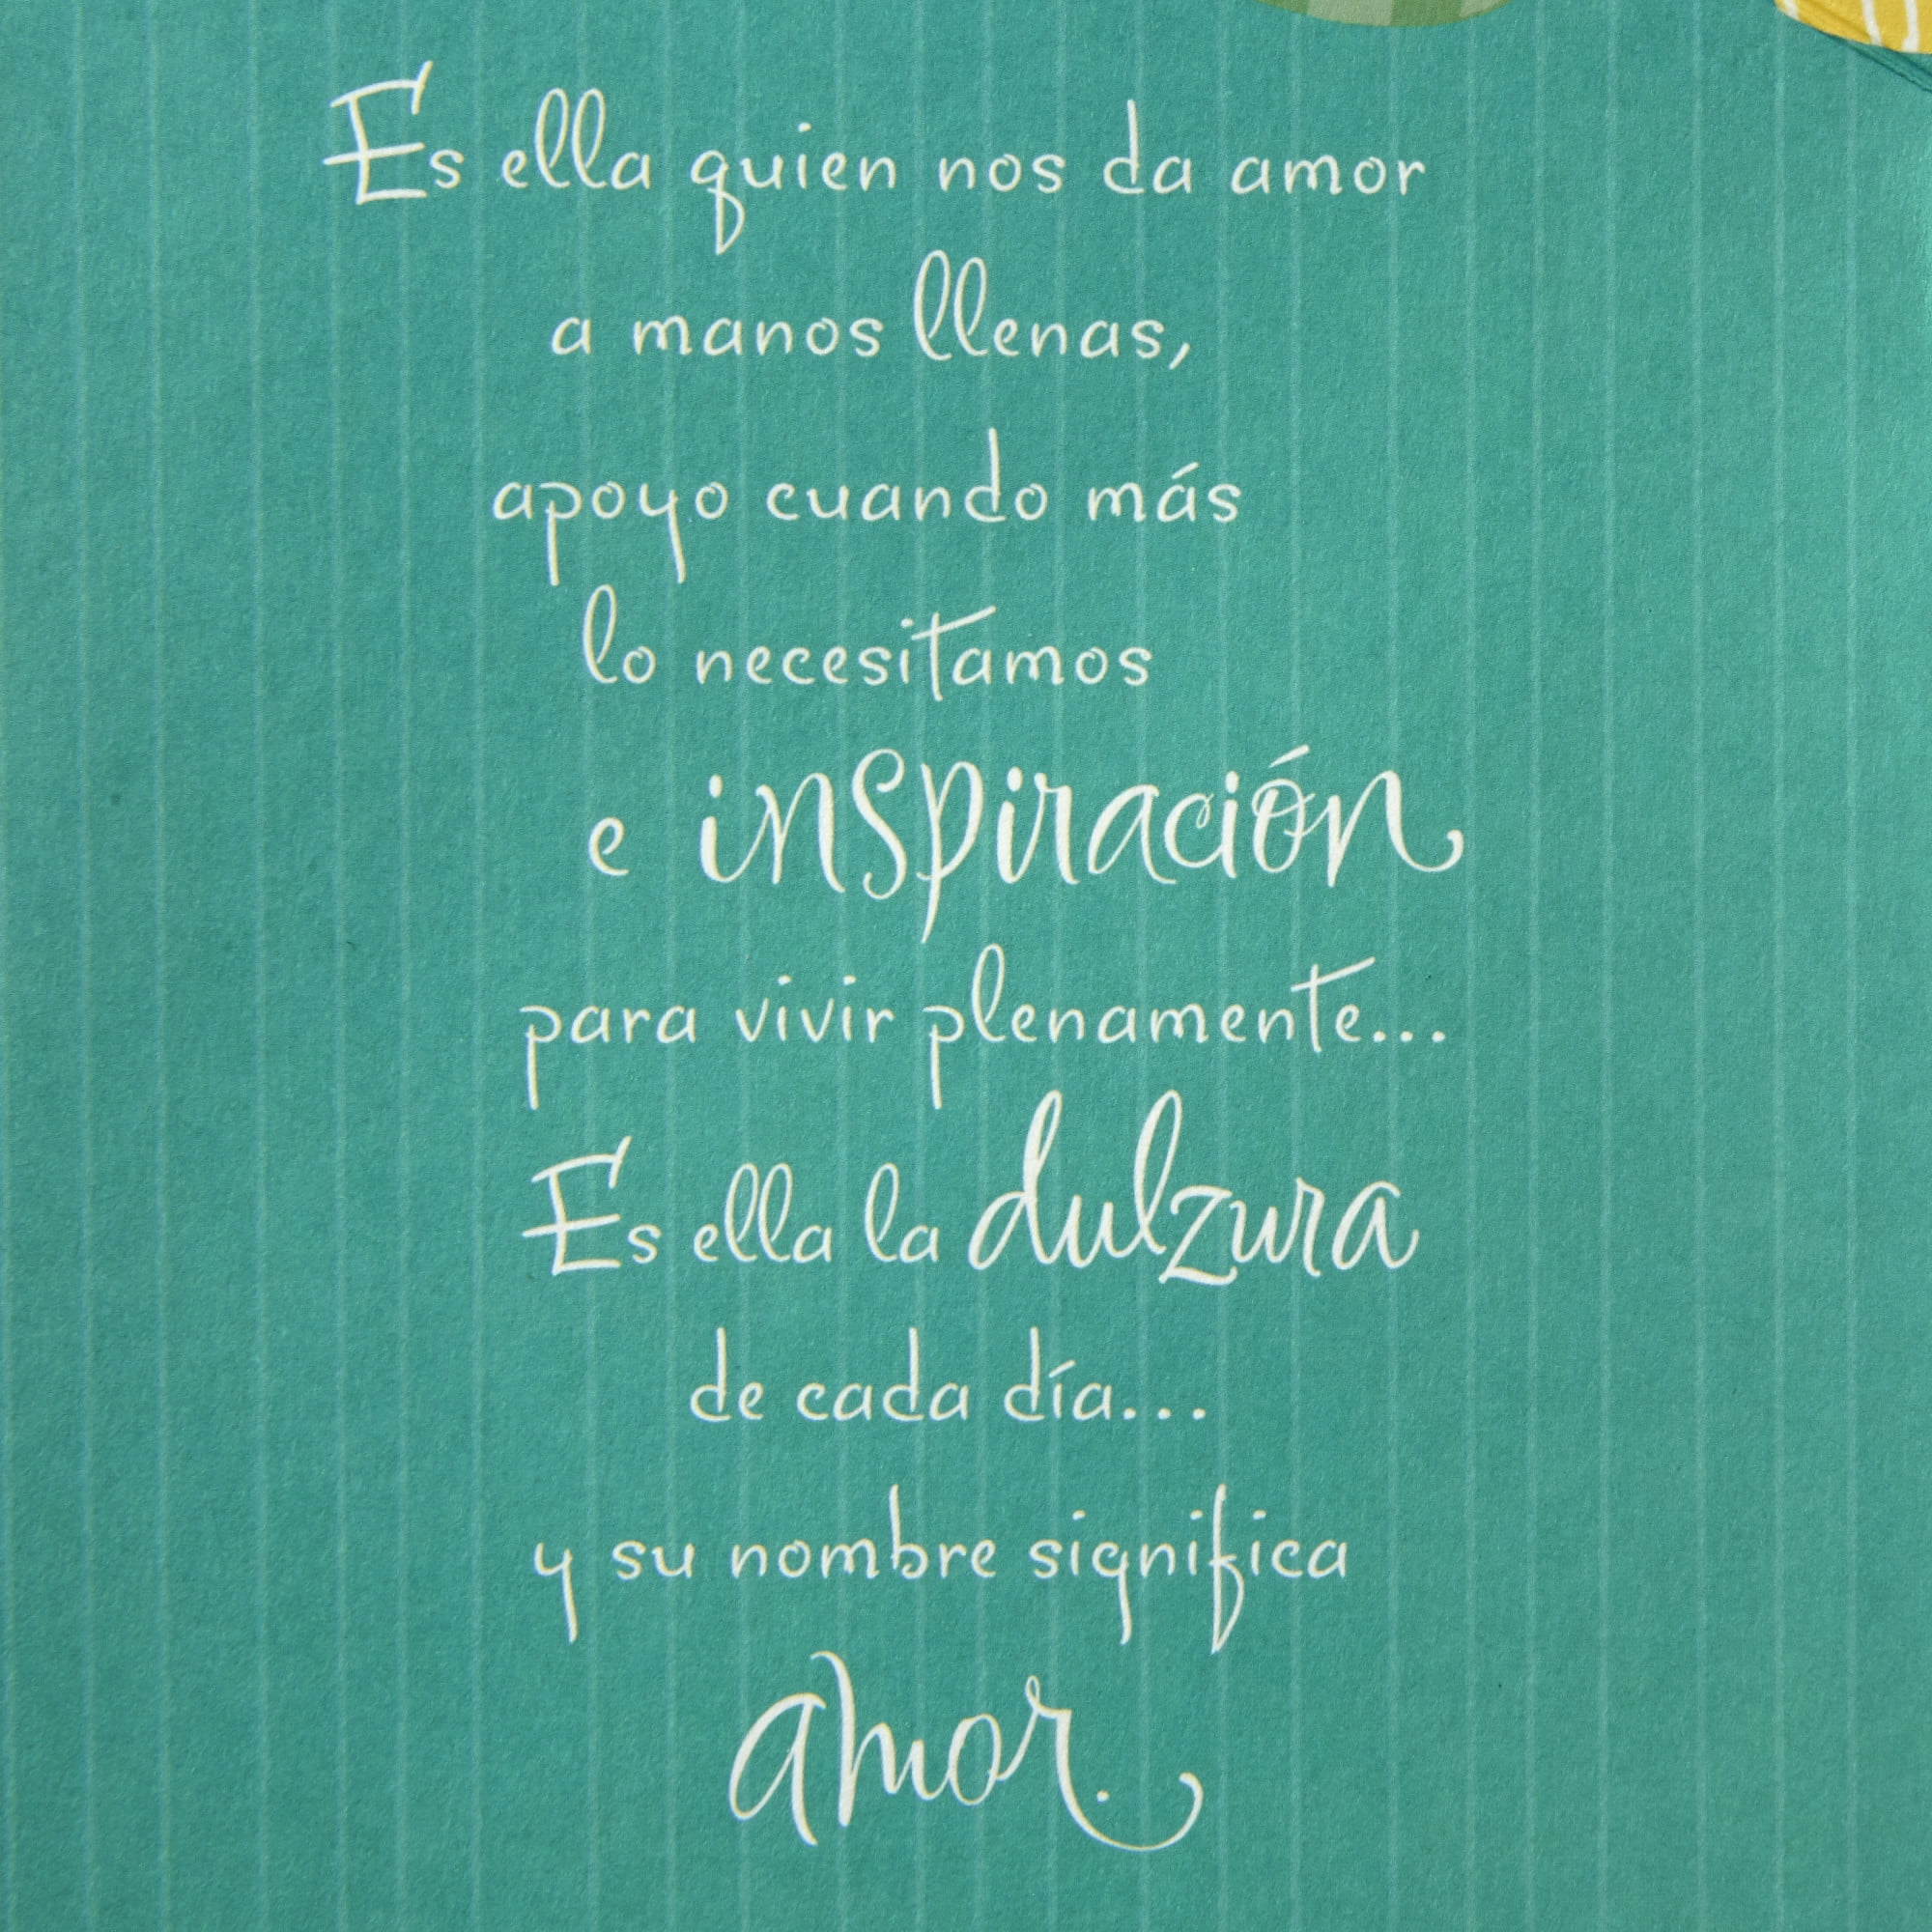 Es ella quien nos da amor
a manos llenas,
apoyo cuando más
lo necesitamos
e inspiración
para vivir plenamente...
Es ella la dulzura
de cada día...
y su nombre significa
amor.